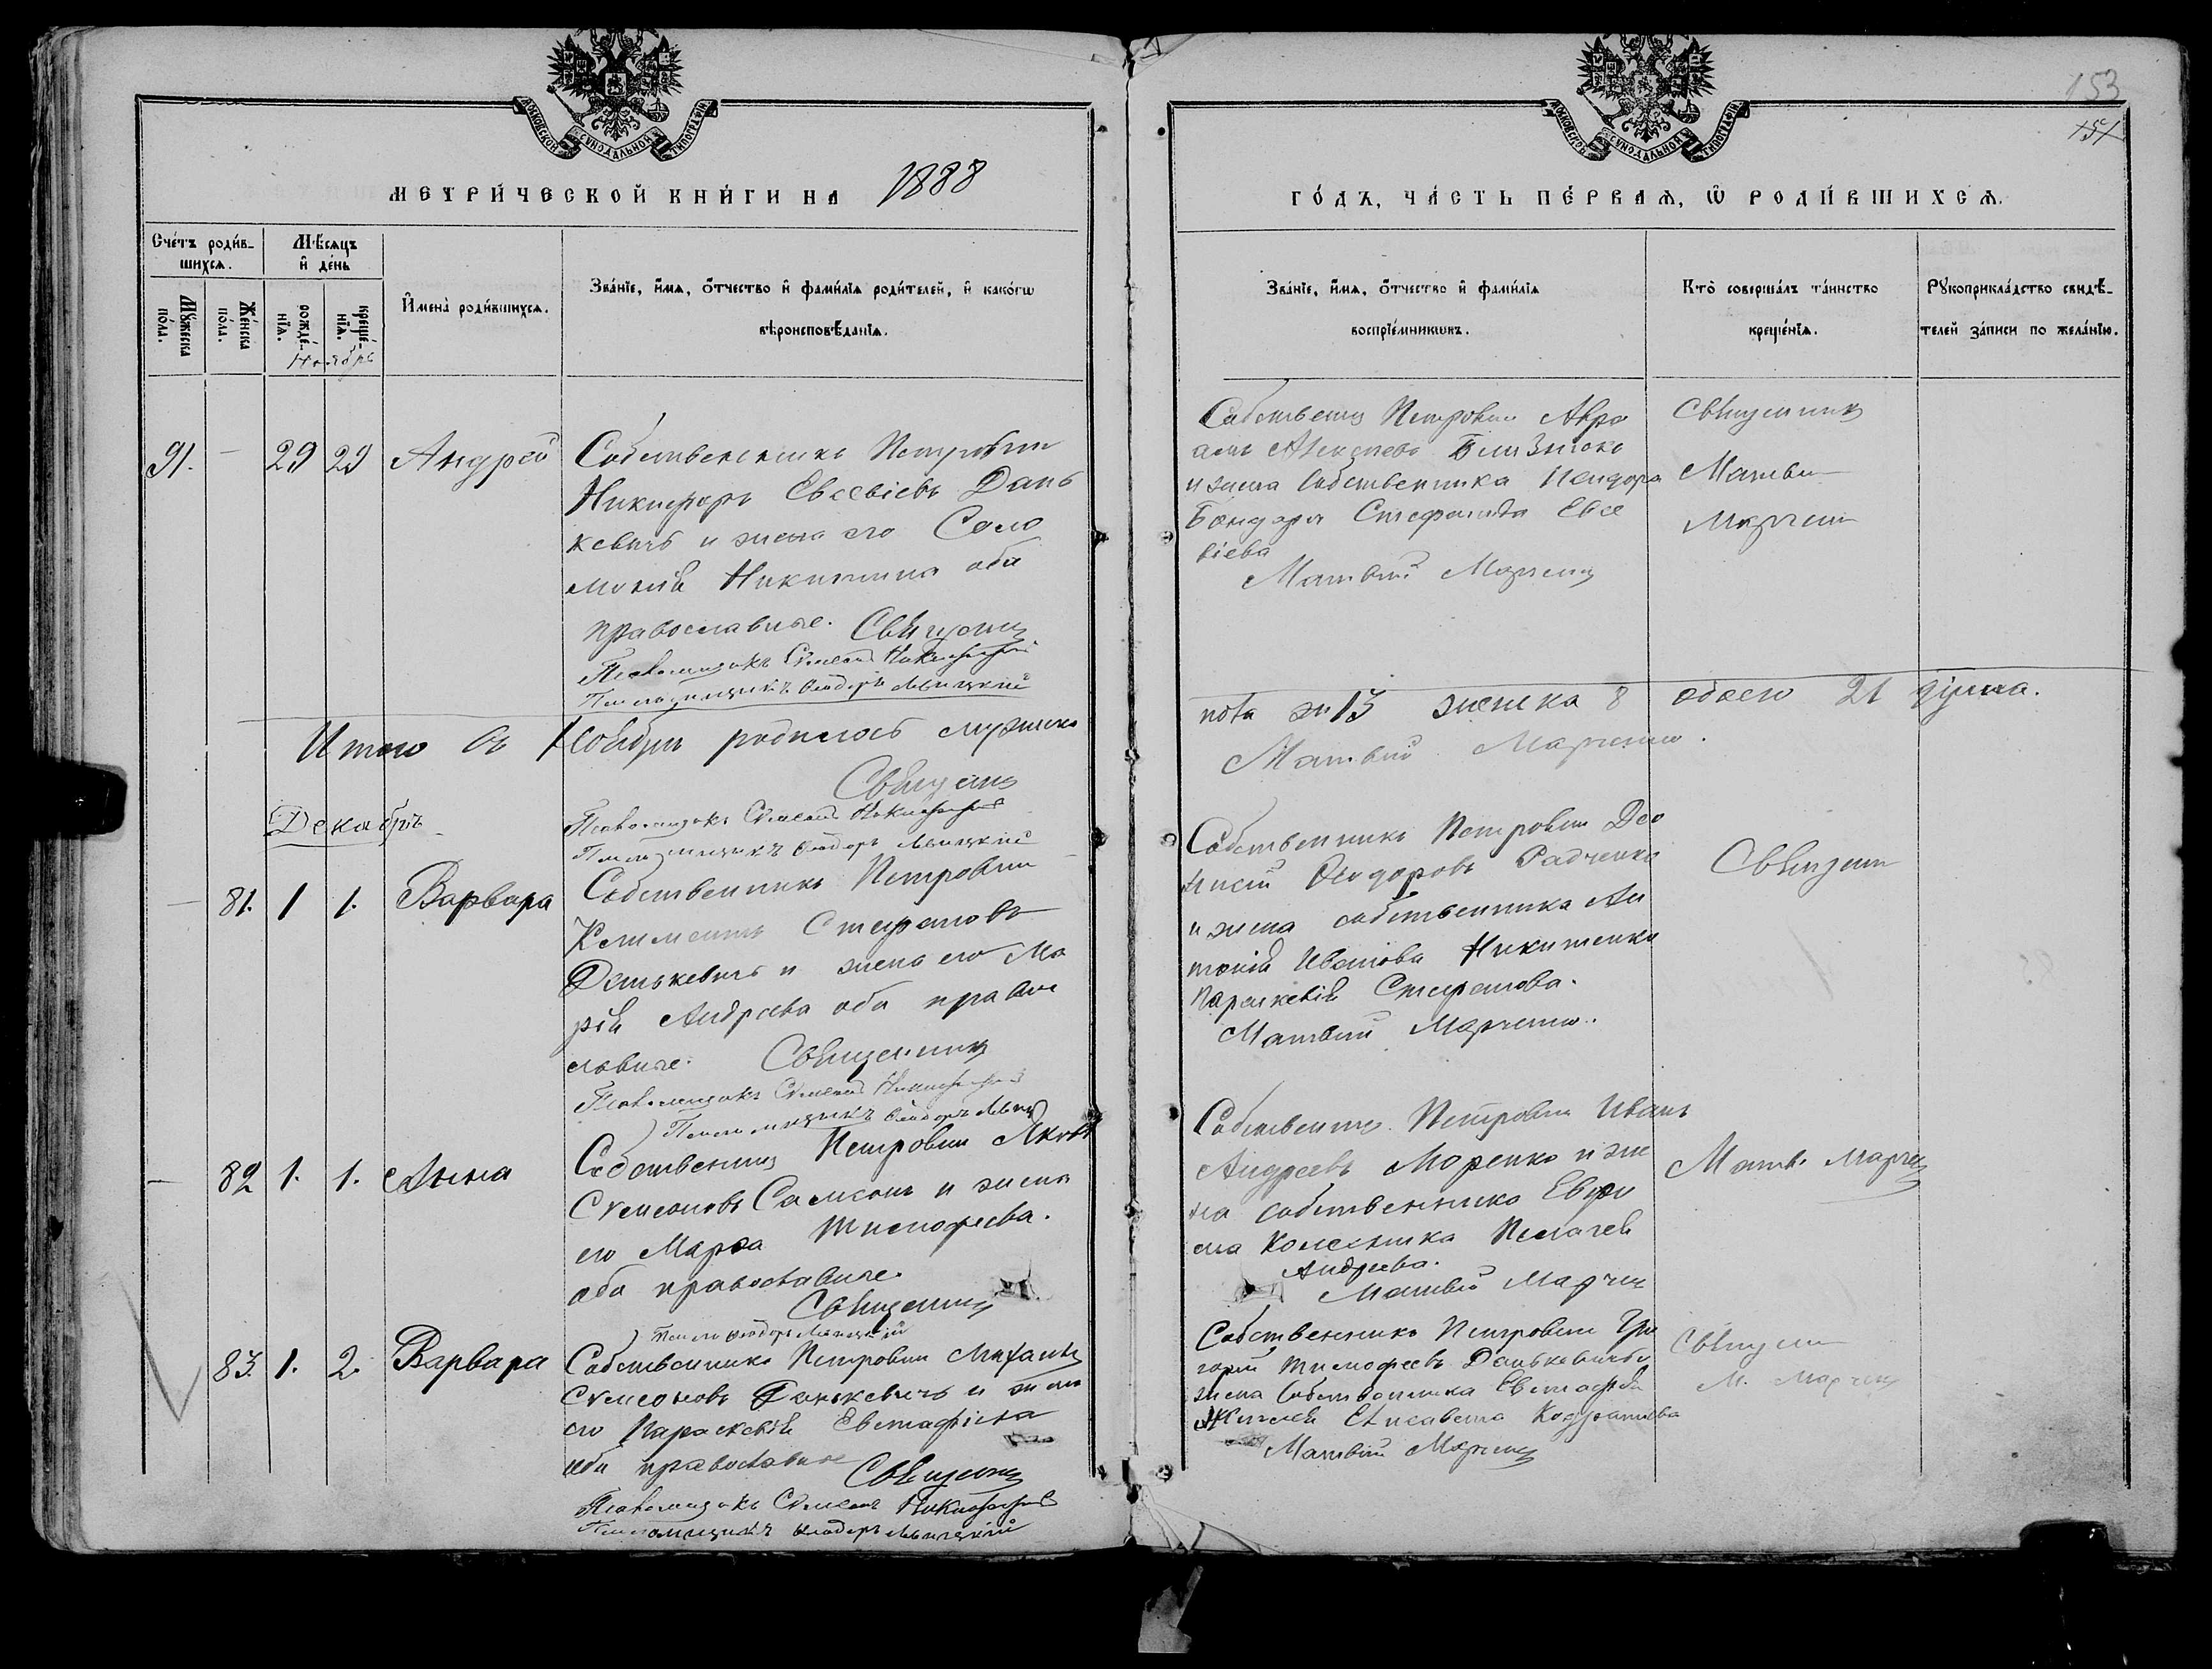 153
154
МОСКОВСКОЙ СѴНОДАЛЬНОЙ ТИПОГРАФІИ
МОСКОВСКОЙ СѴНОДАЛЬНОЙ ТИПОГРАФІИ
МЕТРИ́ЧЕСКОЙ КНИ́ГИ НА 1888
ГО́ДЪ, ЧА́СТЬ ПЕ́РВАѦ, Ѡ҆ РОДИ́ВШИХСѦ.
Сче́тъ роди́в-
шихсѧ.
Мѣ́сѧцъ
и҆ де́нь
Мꙋ́жеска
по́ла.
Же́нска
по́ла.
рожде́-
нїѧ.
креще́-
нїѧ.
Ноябрь
И҆мена̀ роди́вшихсѧ.
Зва́нїе, и҆́мѧ, ѻ҆́тчество и҆ фами́лїѧ роди́телей, и҆ како́гѡ
вѣроисповѣ́данїѧ.
Зва́нїе, и҆́мѧ, ѻ҆́тчество и҆ фами́лїѧ
воспрїе́мникѡвъ.
Кто̀ соверша́лъ та́инство
креще́нїѧ.
Рꙋкоприкла́дство свидѣ́-
телей за́писи по жела́нїю.
91. — 29 29 Андрей
Собственникъ Петровки
Никифоръ Евсевіевъ Дань
кевичъ и жена его Соло
монія Никитина оба
православные. Священн
Псаломщикъ Симеонъ
Псаломщикъ Ѳеодоръ
Собственни Петровки Авра
амъ Алексеевъ Близнюкъ
и жена собственника Исидора
Бондаря Стефанида Евсе
віева
Матвій Марченк
Священник
Матвій
Марченк
Итого въ Ноябрѣ родилось мужска
пола 13 женска 8 обоего 21 душа.
Священн
Матвій Марченко.
Псаломщикъ Симеонъ
Псаломщикъ Ѳеодоръ
Декабрь
— 81. 1 1. Варвара
Собственникъ Петровки
Климентъ Стефановъ
Данькевичъ и жена его Ма
рія Андреева оба право
славные. Священник
Псаломщикъ Симеонъ
Псаломщикъ Ѳеодоръ
Собственникъ Петровки Део
нисій Ѳеодоровъ Радченко
и жена собственника Ан
тонія Иванова Никитенка
Параскевія Стефанова.
Матвій Марченко.
Священ
— 82 1. 1. Анна
Собственни Петровки Яковъ
Симеоновъ Самсонъ и жена
его Марѳа Тимофеева.
оба православные.
Священник
Псалом Ѳеодоръ
Собственни Петровки Иванъ
Андреевъ Моренко и же
на собственника Евфи
ма Колесника Пелагея
Андреева.
Матвій Марчен
Матв. Марчен
83. 1. 2. Варвара
Собственникъ Петровки Михаилъ
Симеоновъ Данькевичъ и жена
его Параскевія Евстафіева
оба православные Священник
Псаломщикъ Симеонъ
Псаломщикъ Ѳеодоръ
Собственникъ Петровки Гри
горій Тимофеевъ Данькевичъ и
жена собственника Евстафія
Елисавета Кодратиева
Матвій Марченк
Священ
М. Марченк